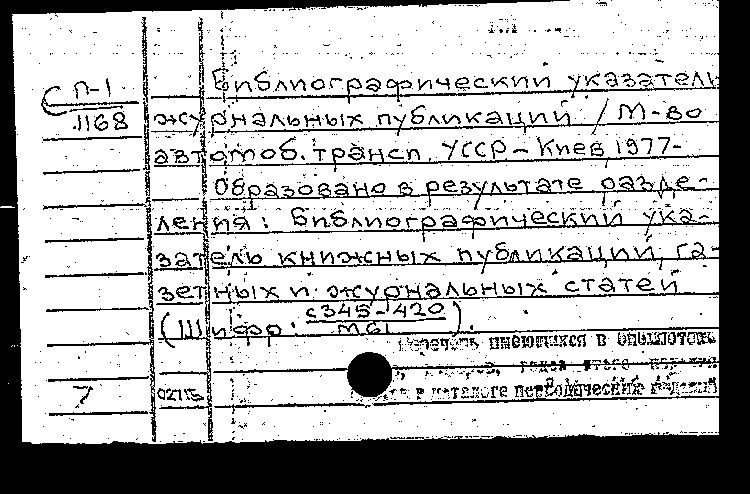 Библиографический указатель
С П-1
1168
журнальных публикаций / М-во
автомоб. трансп. УССР - Киев, 1977-
Образовано в результате разде-
ления: Библиографический ука-
затель книжных публикаций, га-
зетных и журнальных статей
(Шифр: с345-420
М61 ).
Перечень имеющихся в библиотеке
годов этого
в каталоге периодических изданий
7